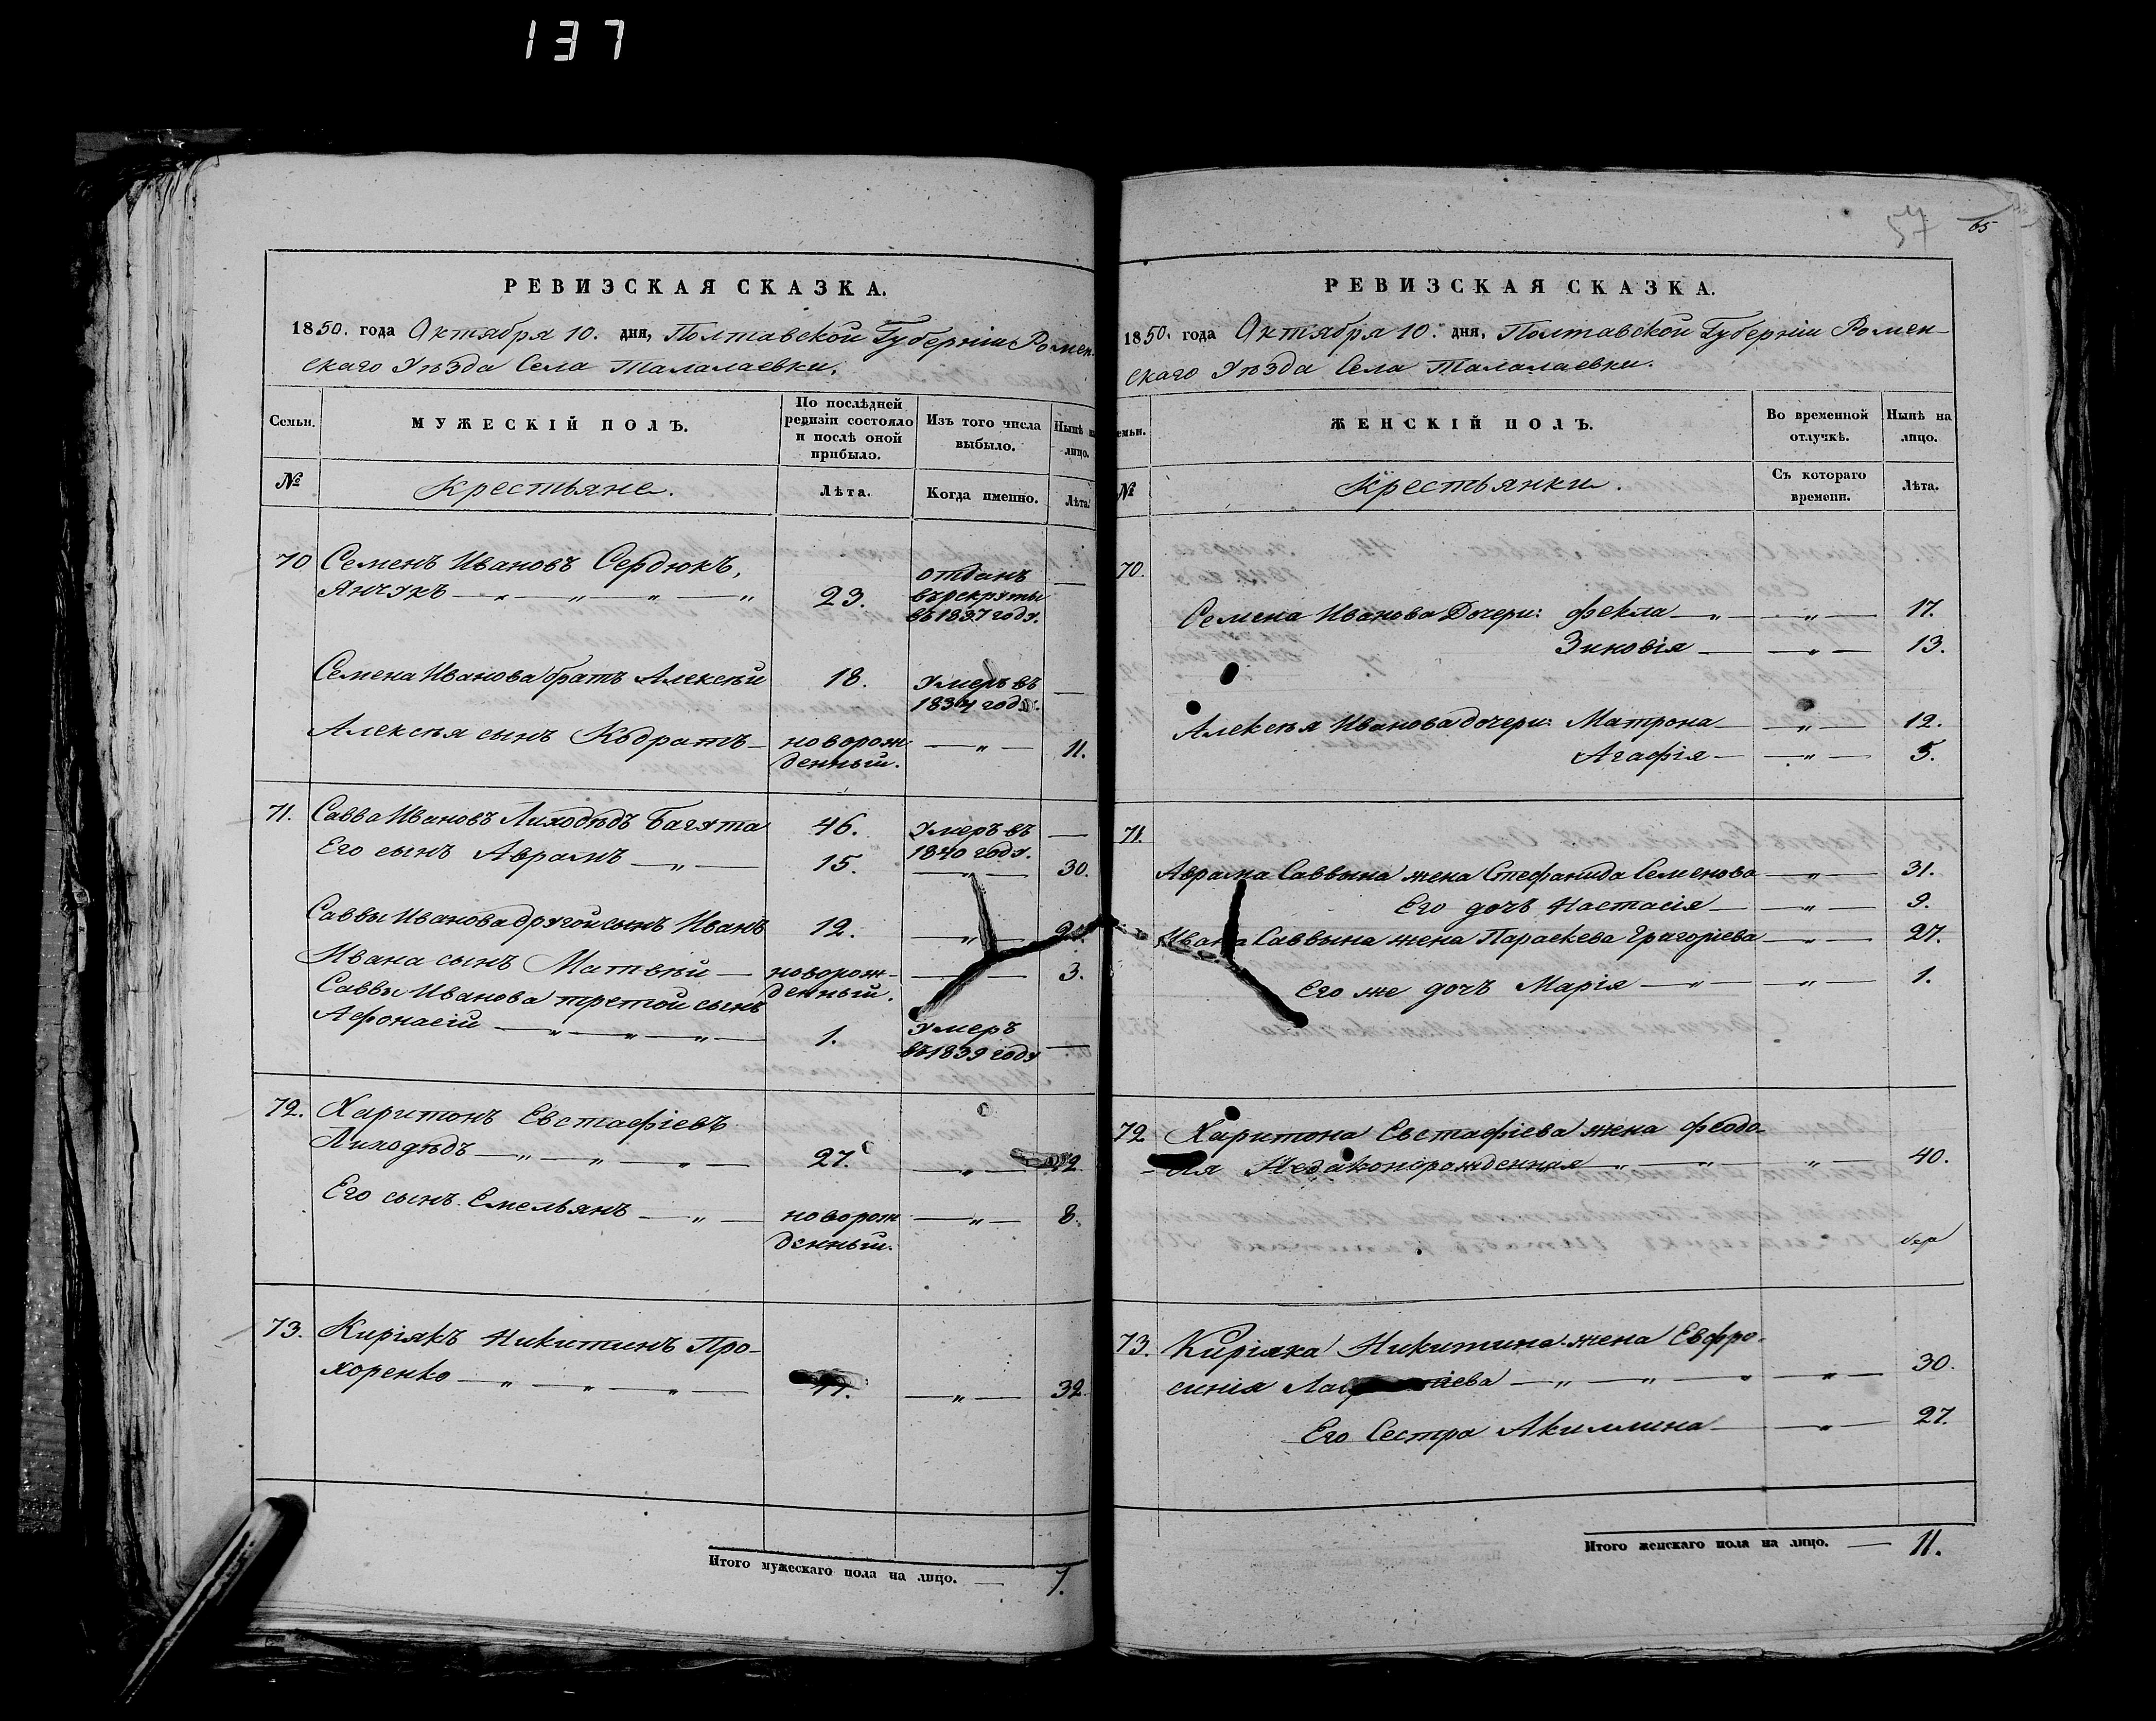 137
РЕВИЗСКАЯ СКАЗКА.
1850. года Октября 10. дня, Полтавской Губерніи Ромен-
скаго Уѣзда Села Талалаевки.
Семьи.
МУЖЕСКІЙ ПОЛЪ.
По послѣдней ревизіи состояло и послѣ оной прибыло.
Изъ того числа выбыло.
Нынѣ на лицо.
№
Крестьяне.
Лѣта.
Когда именно.
Лѣта.
70 Семенъ Ивановъ Сердюкъ,
Янчукъ — „ — „ — „ — „ 23. отданъ въ рекруты въ 1837 году. —
Семена Иванова братъ Алексѣй 18. Умеръ въ 1834 году. —
Алексѣя сынъ Кодратъ — новорожденный. — „ — 11.
71. Савва Ивановъ Лиходѣдъ Багута 46. Умеръ въ 1840 году. —
Его сынъ Аврамъ — „ — 15. — „ — 30.
Саввы Иванова другой сынъ Иванъ 12. — „ —
Ивана сынъ Матвѣй — новорожденный. — „ — 3.
Саввы Иванова третой сынъ
Афонасій — „ — „ — „ — 1. Умеръ въ 1839 году —
72. Харитонъ Евстафіевъ
Лиходѣдъ — „ — „ — „ — 27. — „ —
Его сынъ Емельянъ — „ — новорожденный. — „ — 8.
73. Киріякъ Никитинъ Про-
хоренко — „ — „ — „ — — „ — 32
Итого мужескаго пола на лицо. — 7.
57 65
РЕВИЗСКАЯ СКАЗКА.
1850. года Октября 10. дня, Полтавской Губерніи Ромен-
скаго Уѣзда Села Талалаевки.
емьи.
ЖЕНСКІЙ ПОЛЪ.
Во временной отлучкѣ.
Нынѣ на лицо.
№
Крестьянки.
Съ котораго времени.
Лѣта.
70.
Семена Иванова Дочери: Фекла — „ — — „ — 17.
Зиновія — — „ — 13.
Алексѣя Иванова дочери: Матрона — — „ — 12.
Агафія — — „ — 5.
71.
Аврама Саввына жена Стефанида Семенова — „ — 31.
Его дочь Настасія — — „ — 9.
Ивана Саввына жена Параскева Григоріева — „ — 27.
Его же дочь Марія — „ — — „ — 1.
72. Харитона Евстафіева жена Феодо-
— „ — „ — „ — 40.
73. Киріяка Никитина жена Евфро-
синія — „ — „ — „ — „ — 30.
Его Сестра Акиллина — — „ — 27.
Итого женскаго пола на лицо. — 11.